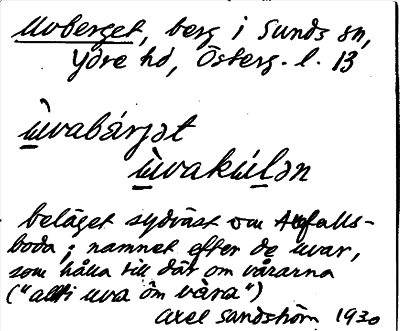 Uvberget, berg i Sunds sn,
Ydre hd, Österg. l. 13
ùvabárjət
ùvakúlən
beläget sydväst om Aufalls-
boda; namnet efter de uvar,
som hålla till där om vårarna
("allti uva öm våra")
Axel Sandström 1930